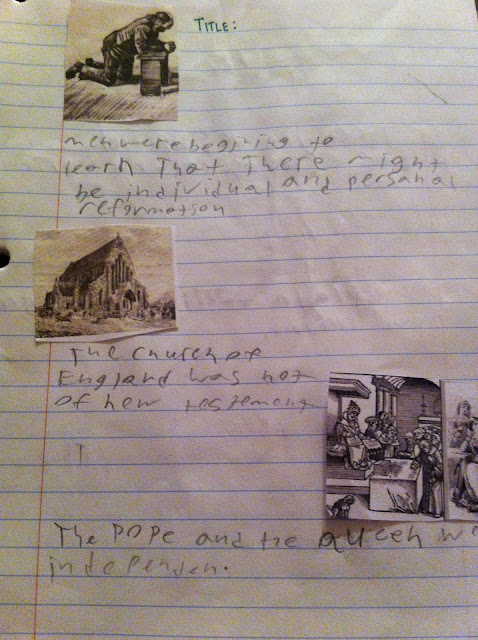 TITLE:
men were begining to
learn That There might
be individual and personal
reformation
The church of
England was not
of new testement
The POPe and the queen w
independen.